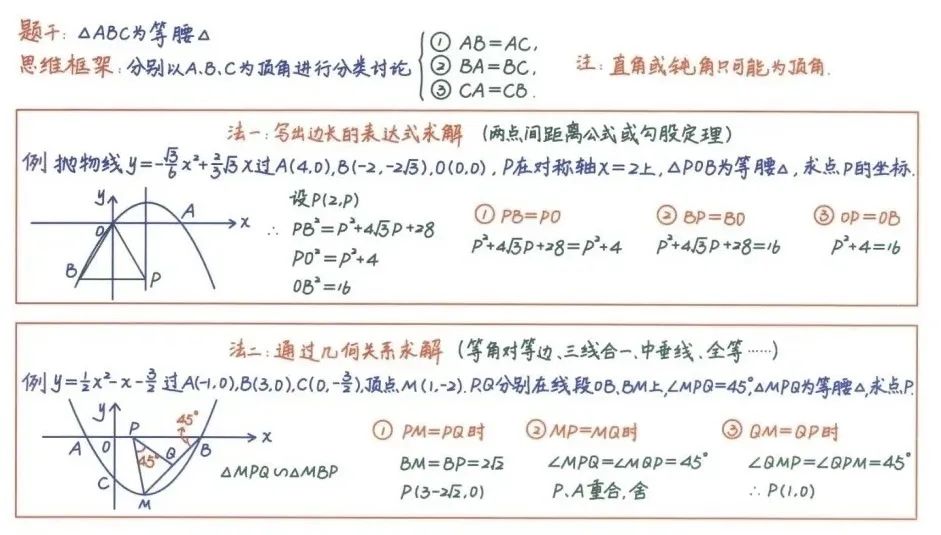 题干: △ABC为等腰△
思维框架: 分别以A、B、C为顶角进行分类讨论
① AB=AC,
② BA=BC,
③ CA=CB.
注: 直角或钝角只可能为顶角.
法一: 写出边长的表达式求解 (两点间距离公式或勾股定理)
例 抛物线y=-√3/6x²+2/3√3x过A(4,0),B(-2,-2√3),O(0,0), P在对称轴x=2上, △POB为等腰△, 求点P的坐标.
y
A
O
x
B
P
设P(2,P)
∴ PB²=P²+4√3P+28
PO²=P²+4
OB²=16
① PB=PO
P²+4√3P+28=P²+4
② BP=BO
P²+4√3P+28=16
③ OP=OB
P²+4=16
法二: 通过几何关系求解 (等角对等边、三线合一、中垂线、全等……)
例 y=1/2x²-x-3/2过A(-1,0),B(3,0),C(0,-3/2),顶点M(1,-2). P.Q分别在线段OB、BM上,∠MPQ=45°,△MPQ为等腰△,求点P.
y
P
45°
x
A
O
Q
B
45°
C
M
△MPQ∽△MBP
① PM=PQ时
BM=BP=2√2
P(3-2√2,0)
② MP=MQ时
∠MPQ=∠MQP=45°
P、A重合,舍
③ QM=QP时
∠QMP=∠QPM=45°
∴ P(1,0)